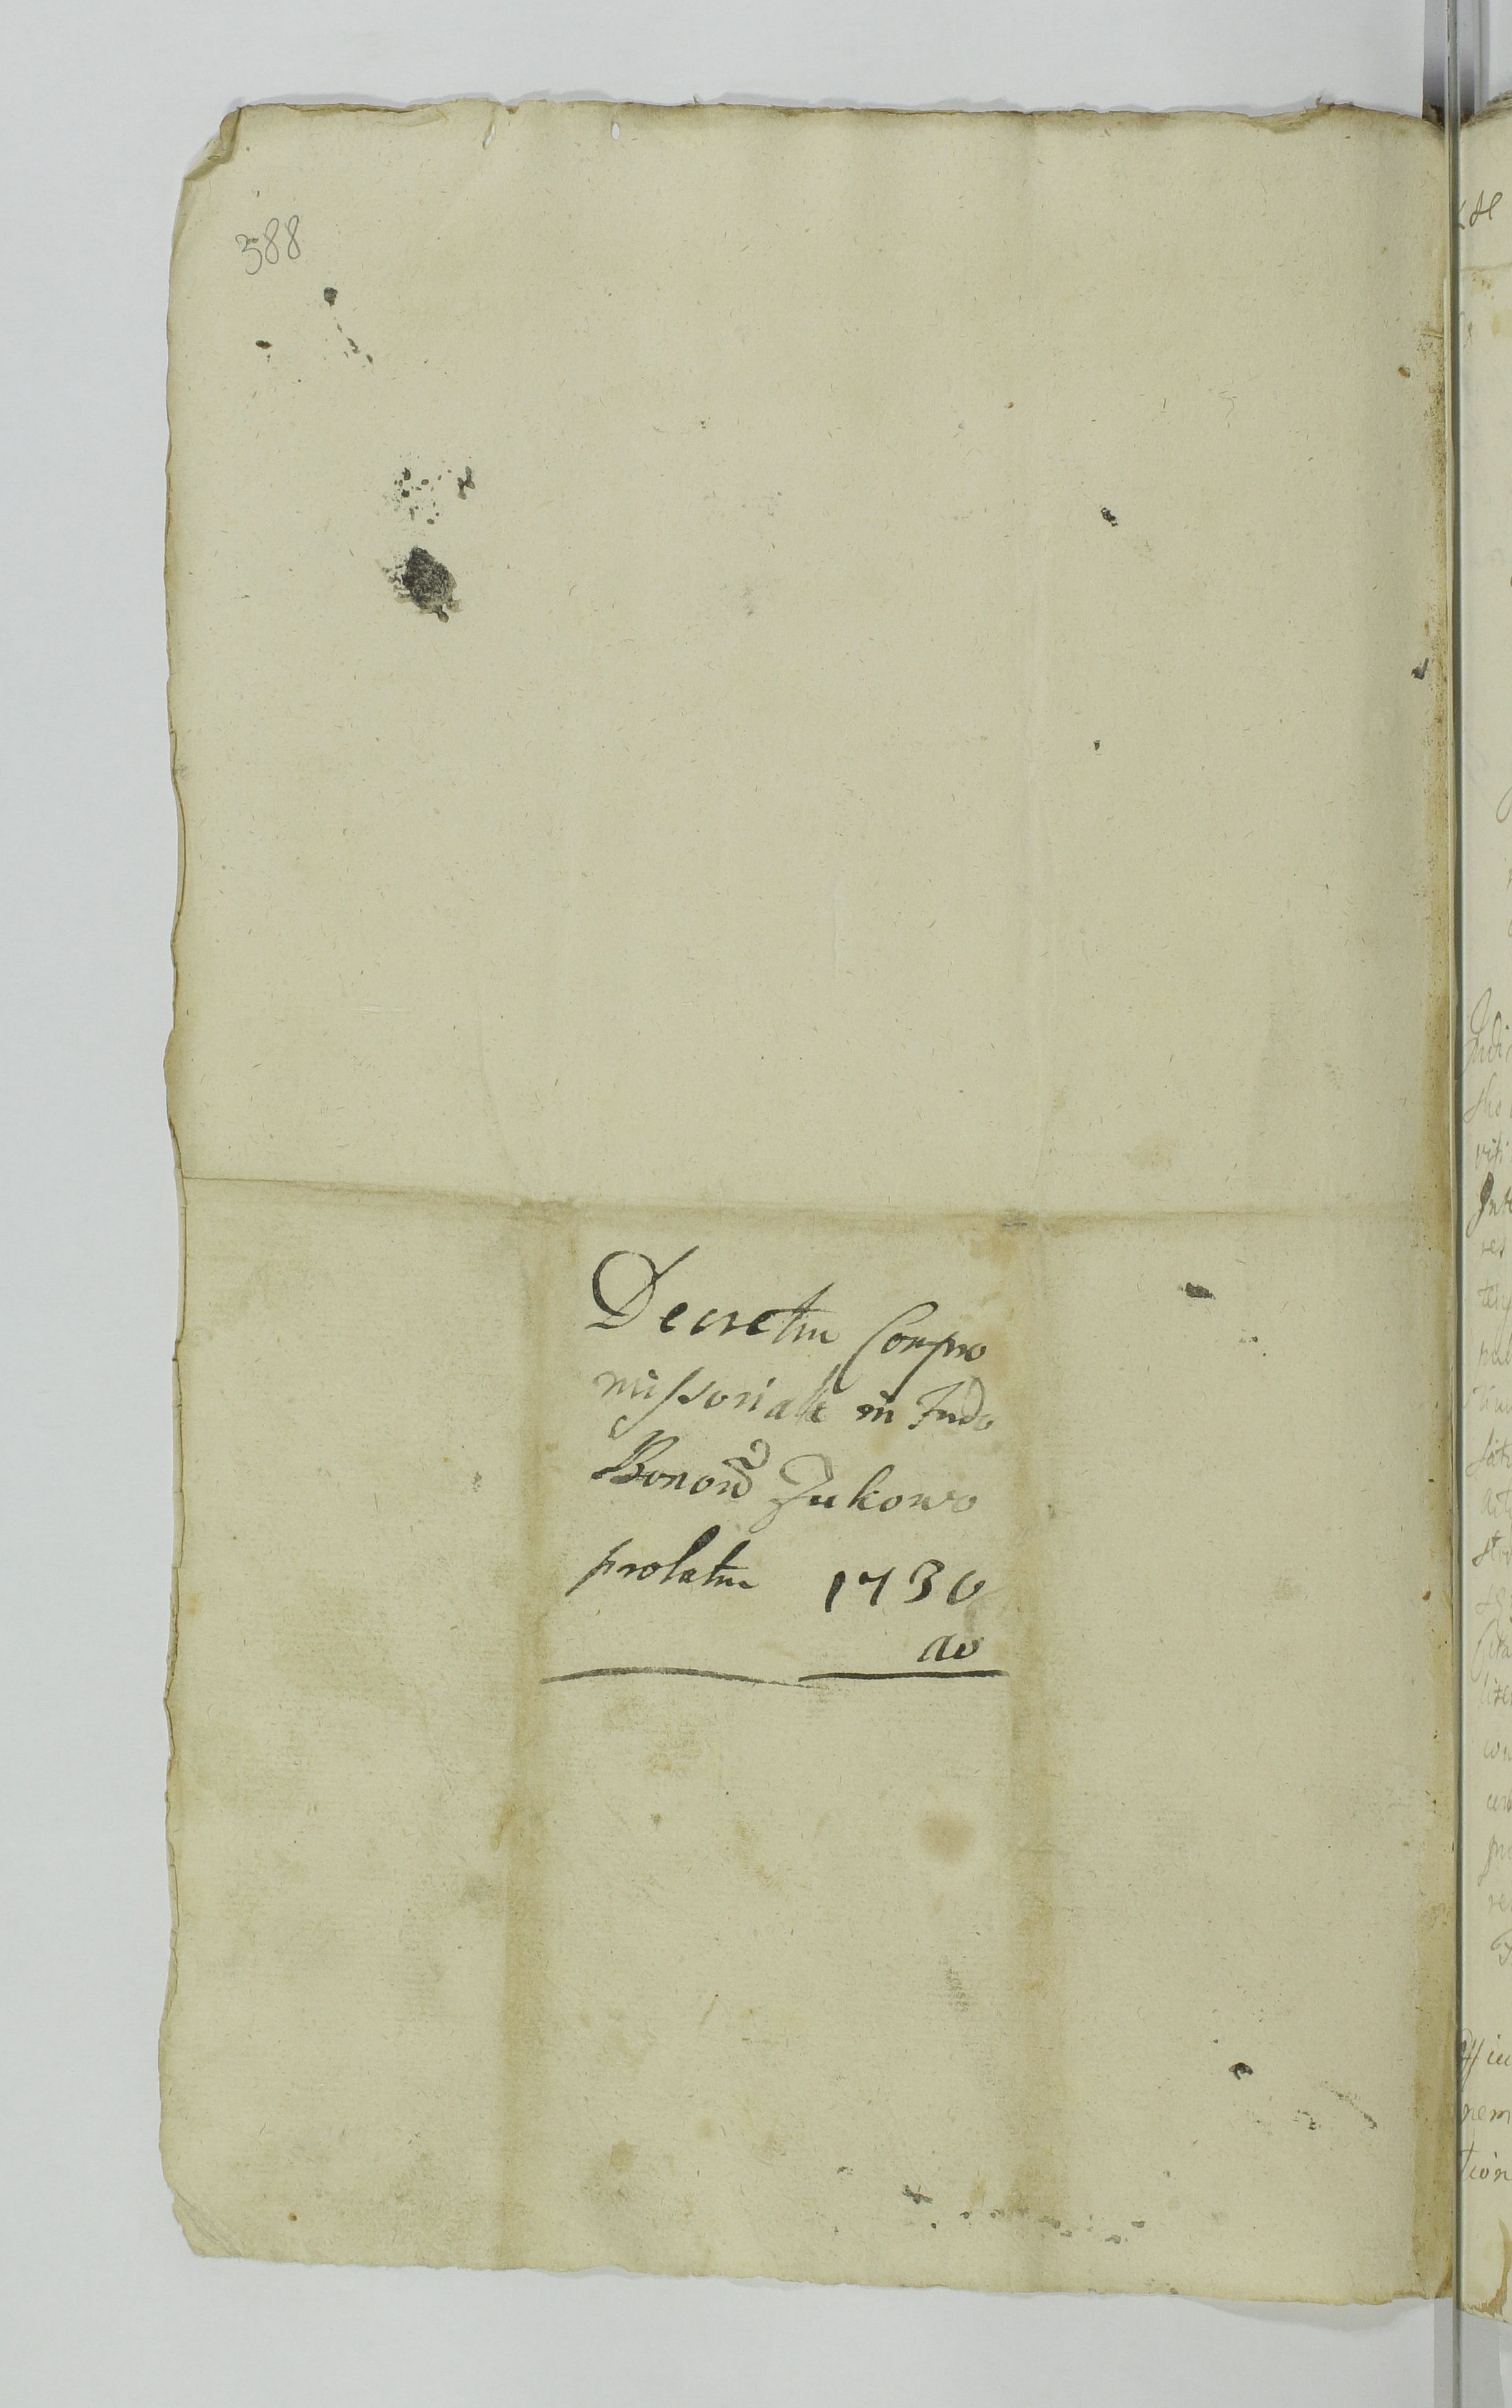 388
Decretm Compro
missoriale in Fndo
Bonorũ Zukowo
prolatm 1730
ao